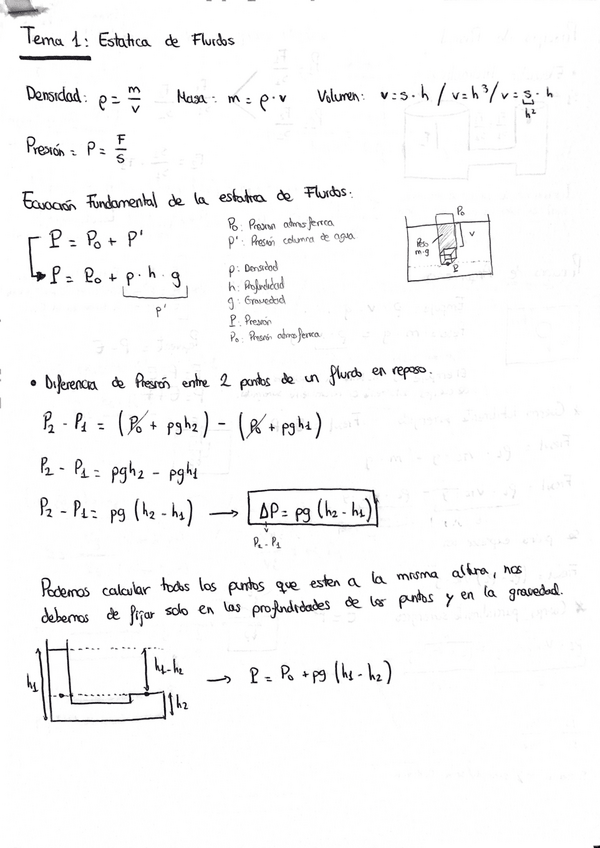 Tema 1: Estatica de Fluidos
Densidad: ρ = m/v   Masa: m = ρ · v   Volumen: v = s · h / v = h³ / v = s · h
h²
Presión = P = F/S
Ecuación Fundamental de la estatica de Fluidos:
P = P₀ + P'
P = P₀ + ρ · h · g
P'
P₀: Presion atmosferica
P': Presión columna de agua
ρ: Densidad
h: Profundidad
g: Gravedad
P: Presión
P₀: Presion atmosferica
P₀
Peso
m·g
v
P
• Diferencia de Presión entre 2 puntos de un fluido en reposo.
P₂ - P₁ = (P₀ + ρgh₂) - (P₀ + ρgh₁)
P₂ - P₁ = ρgh₂ - ρgh₁
P₂ - P₁ = ρg (h₂ - h₁) → ΔP = ρg (h₂ - h₁)
P₂ - P₁
Podemos calcular todos los puntos que esten a la misma altura, nos
debemos de fijar solo en las profundidades de los puntos y en la gravedad.
h₁
h₁ - h₂
h₂
→ P = P₀ + ρg (h₁ - h₂)